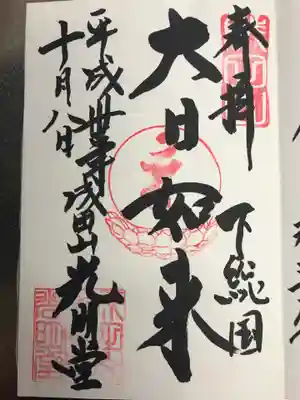 奉拝
下総国
大日如来
平成丗年
十月八日
成田山光明堂